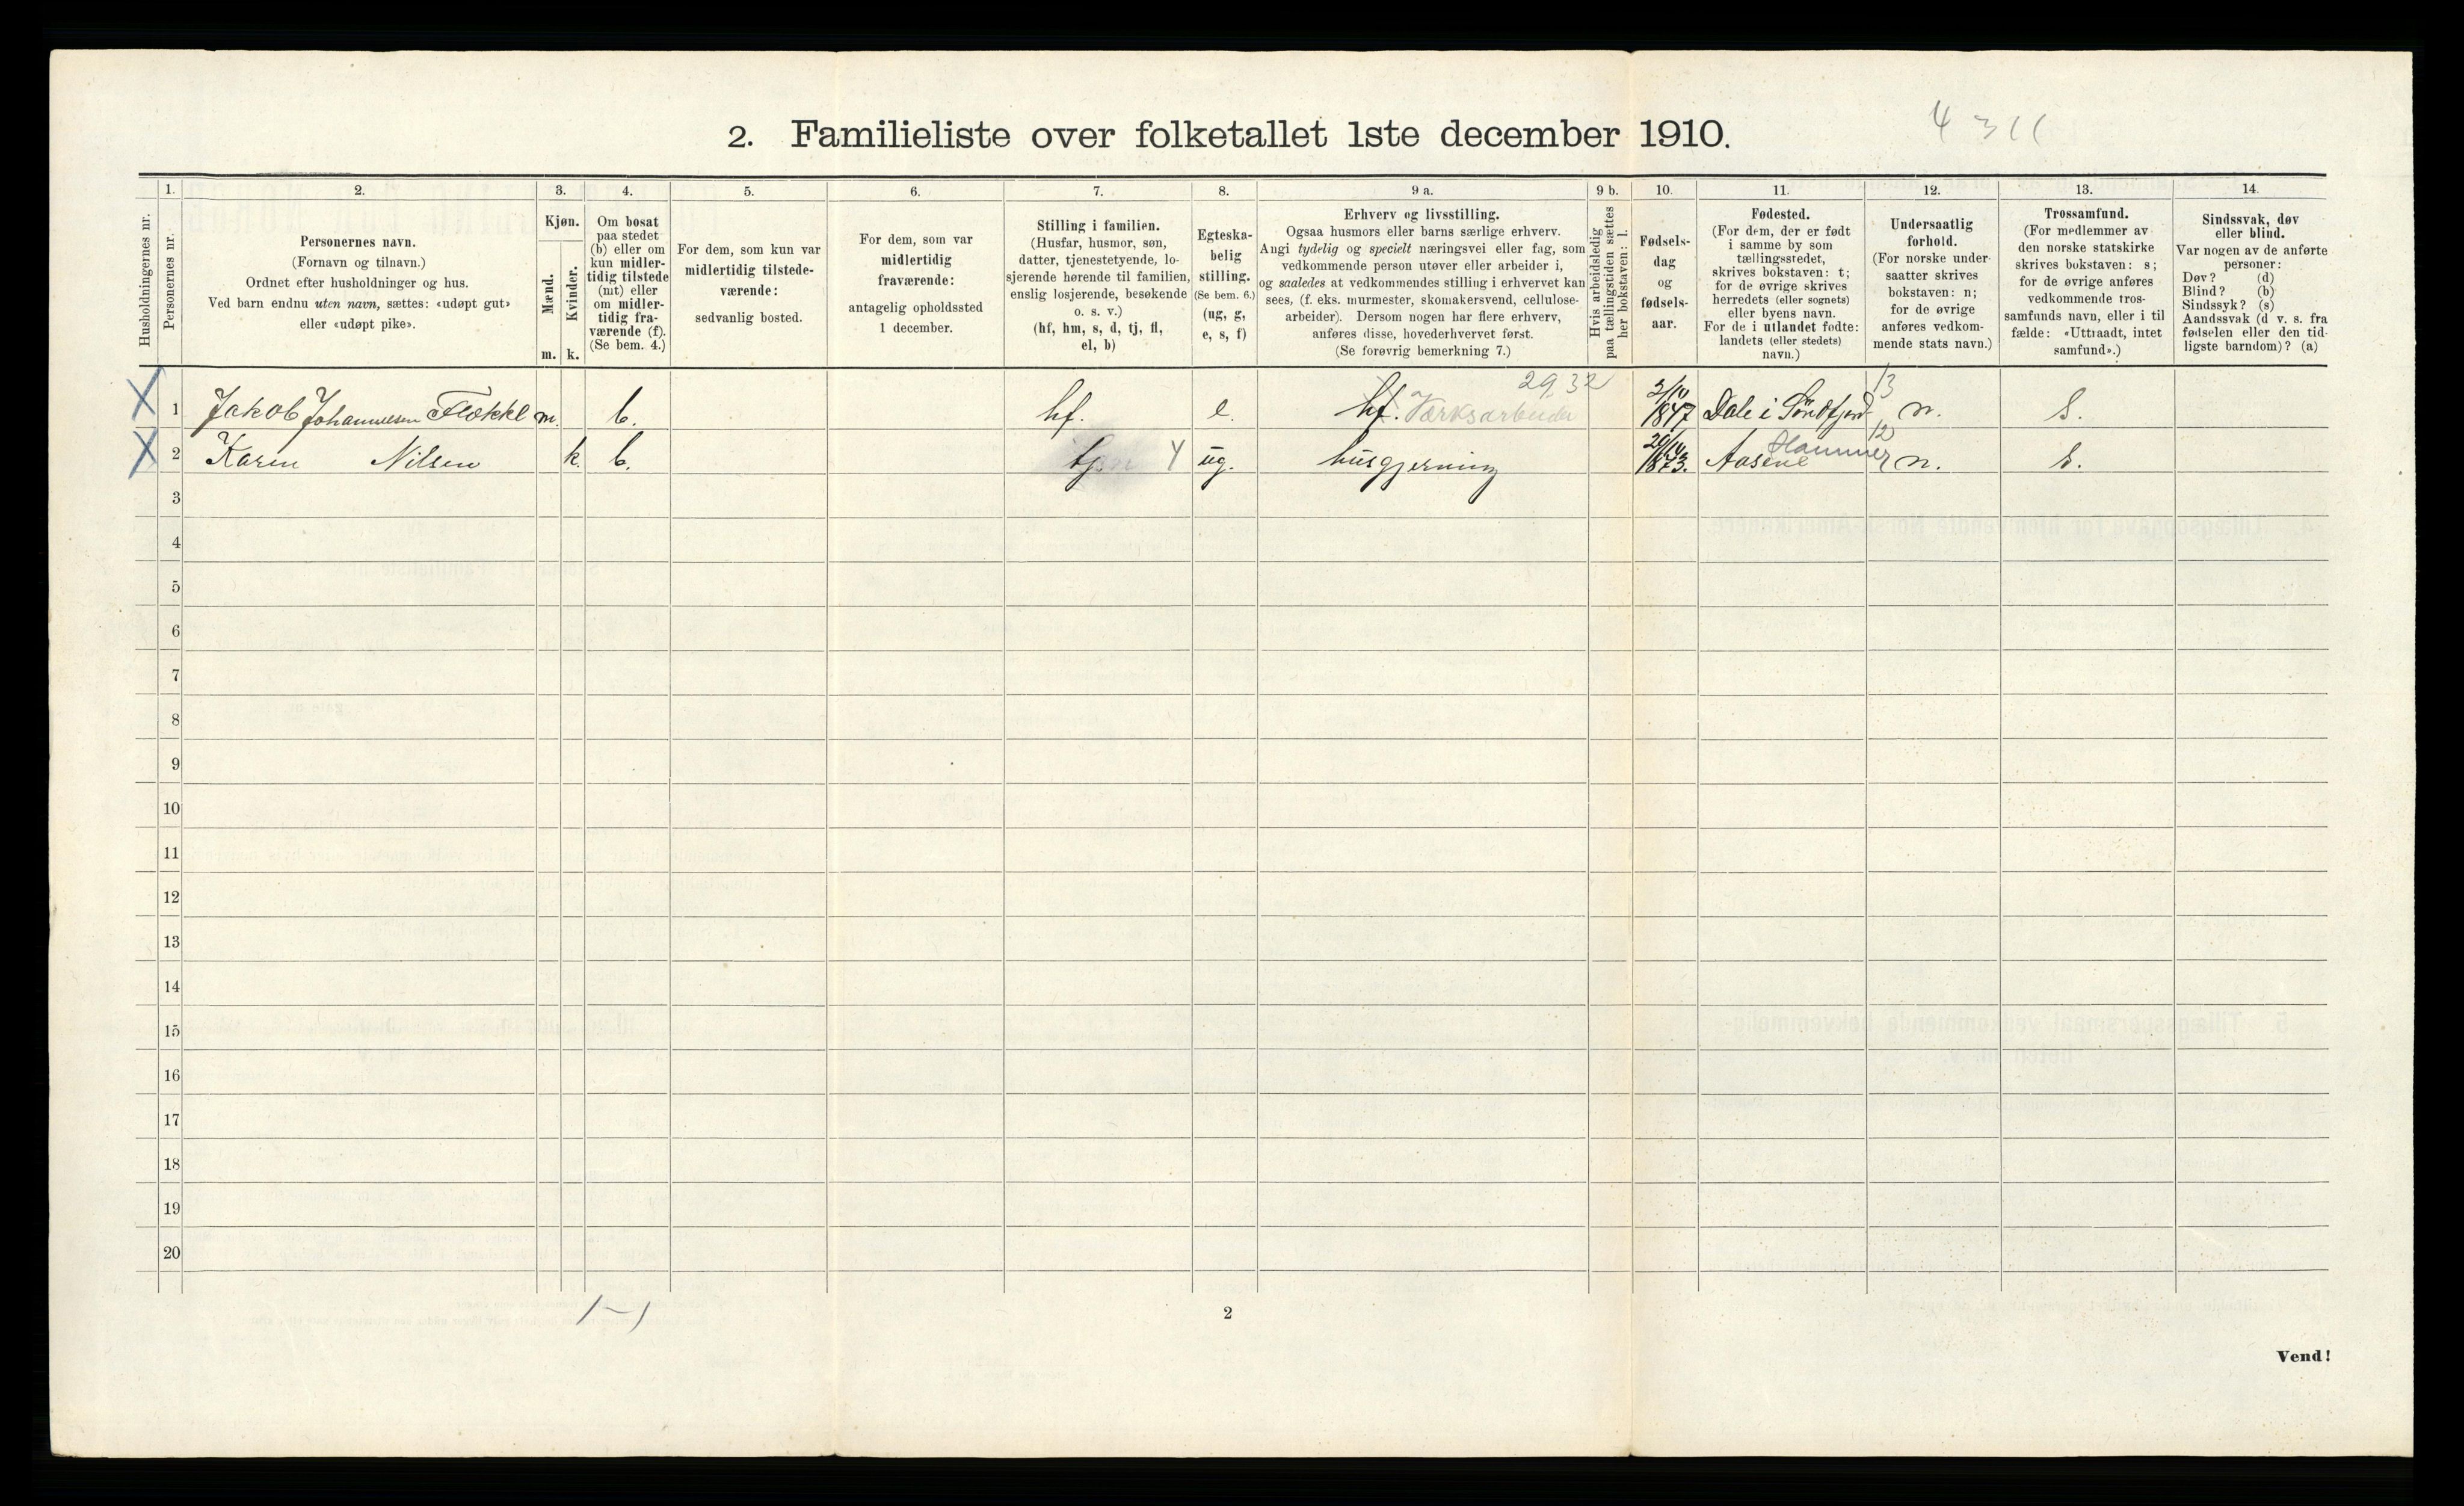 4311
2. Familieliste over folketallet 1ste december 1910.
Husholdningernes nr.
1.
Personernes nr.
2.
Personernes navn.
(Fornavn og tilnavn.)
Ordnet efter husholdninger og hus.
Ved barn endnu uten navn, sættes: «udøpt gut»
eller «udøpt pike».
3.
Kjøn.
Mænd.
Kvinder.
m. k.
4.
Om bosat
paa stedet
(b) eller om
kun midler-
tidig tilstede
(mt) eller
om midler-
tidig fra-
værende (f).
(Se bem. 4.)
5.
For dem, som kun var
midlertidig tilstede-
værende:
sedvanlig bosted.
6.
For dem, som var
midlertidig
fraværende:
antagelig opholdssted
1 december.
7.
Stilling i familien.
(Husfar, husmor, søn,
datter, tjenestetyende, lo-
sjerende hørende til familien,
enslig losjerende, besøkende
o. s. v.)
(hf, hm, s, d, tj, fl,
el, b)
8.
Egteska-
belig
stilling.
(Se bem. 6.)
(ug, g,
e, s, f)
9 a.
Erhverv og livsstilling.
Ogsaa husmors eller barns særlige erhverv.
Angi tydelig og specielt næringsvei eller fag, som
vedkommende person utøver eller arbeider i,
og saaledes at vedkommendes stilling i erhvervet kan
sees, (f. eks. murmester, skomakersvend, cellulose-
arbeider). Dersom nogen har flere erhverv,
anføres disse, hovederhvervet først.
(Se forøvrig bemerkning 7.)
9 b.
Hvis arbeidsledig
paa tællingstiden sættes
her bokstaven: l.
10.
Fødsels-
dag
og
fødsels-
aar.
11.
Fødested.
(For dem, der er født
i samme by som
tællingsstedet,
skrives bokstaven: t;
for de øvrige skrives
herredets (eller sognets)
eller byens navn.
For de i utlandet fødte:
landets (eller stedets)
navn.)
12.
Undersaatlig
forhold.
(For norske under-
saatter skrives
bokstaven: n;
for de øvrige
anføres vedkom-
mende stats navn.)
13.
Trossamfund.
(For medlemmer av
den norske statskirke
skrives bokstaven: s;
for de øvrige anføres
vedkommende tros-
samfunds navn, eller i til
fælde: «Uttraadt, intet
samfund».)
14.
Sindssvak, døv
eller blind.
Var nogen av de anførte
personer:
Døv? (d)
Blind? (b)
Sindssyk? (s)
Aandssvak (d v. s. fra
fødselen eller den tid-
ligste barndom)? (a)
X 1 Jakob Johannesen Flekke m. b. hf. e. hf. Værksarbeider 29,32 2/10 1847 Dale i Söndfjord 13 n. s.
X 2 Karen Nilsen k. b. tj 4 ug. husgjerning 1873. Aasene Hammer 12 n. s.
3
4
5
6
7
8
9
10
11
12
13
14
15
16
17
18
19
20
1-1
2
Vend!